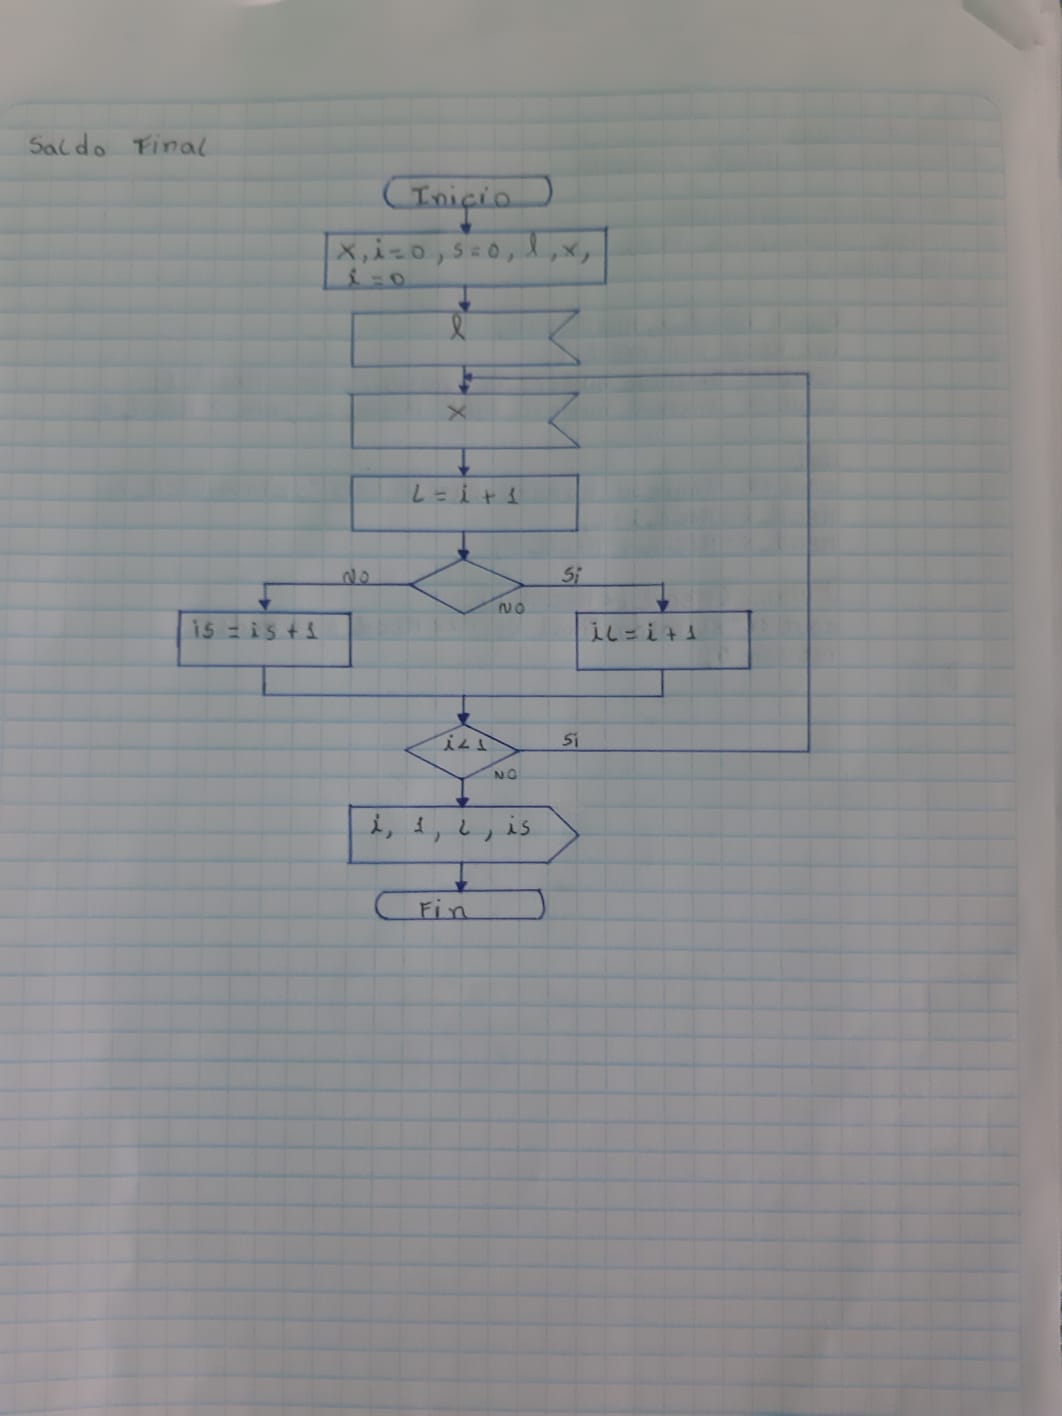 Saldo Final
Inicio
x, i=0, s=0, l, x,
i=0
l
x
L = i + 1
NO
Si
NO
is = is + 1
iL = i + 1
i<1
Si
NO
i, 1, L, is
Fin